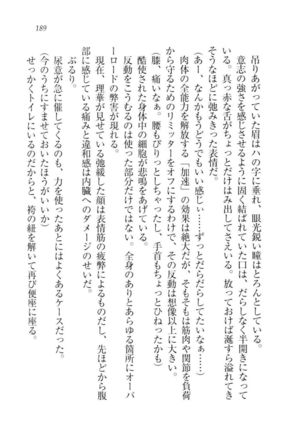 189
吊りあがっていた眉はハの字に垂れ、眼光鋭い瞳はとろんとしている。
意志の強さを感じさせるように固く結ばれていた口は、だらしなく半開きになっている。真っ赤な舌がちょっとだけはみ出してさえいる。放っておけば涎すら溢れてきそうなほどに弛みきった表情だ。
(あー、なんかもうどうでもいい感じぃ……ずっとだらだらしてたいなぁ……)
肉体の全能力を解放する「加速」の効果は絶大だが、そもそもは筋肉や関節を負荷から守るためのリミッターをオフにするわけで、その反動は想像以上に大きい。
(膝、痛いなぁ。腰もぴりっとしちゃったし、手首もちょっとひねったかも)
酷使された身体中の細胞が悲鳴をあげている。
反動をこうむるのは使った部分だけではない。全身のありとあらゆる箇所にオーバーロードの弊害が現れる。
現在、理華が見せている弛緩した顔は表情筋の疲弊によるものだし、先ほどから腹部に感じている痛みと違和感は内臓へのダメージのせいだ。
ぶるり。
尿意が急に催してくるのも、力を使ったあとにはよくあるケースだった。
(今のうちにすませておいたほうがいいか)
せっかくトイレにいるのだからと、袴の紐を解いて再び便座に座る。